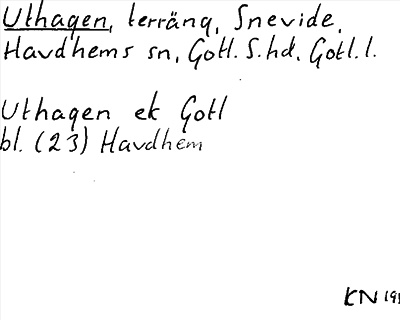 Uthagen, terräng, Snevide,
Havdhems sn, Gotl. S. hd, Gotl. l.
Uthagen ek Gotl
bl. (23) Havdhem
KN